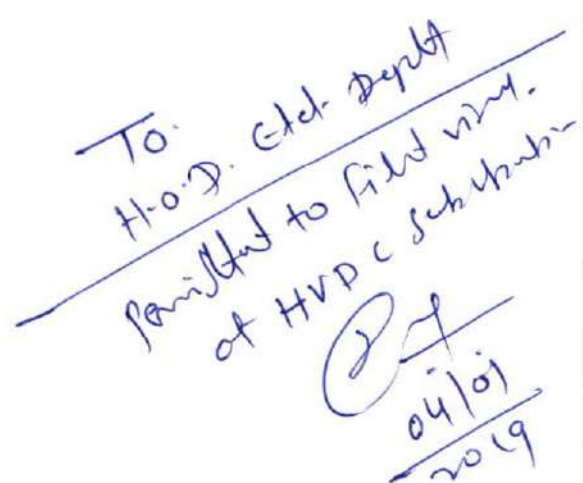 To.
H.O.D. Elet. Deptt
Permitted to Field visit.
at HVDC Substation
04/01
2019